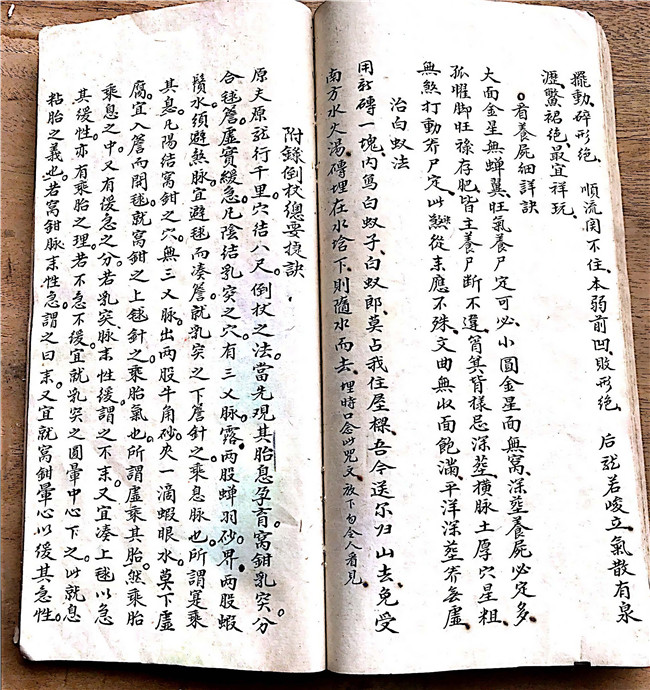 擺動碎形絕　順流関不住、本弱前凹、敗形絕　后龍若峻立、氣散有泉
瀝、鱉裙絕、最宜祥玩
。看養屍細詳訣
大面金星無蟬翼、旺氣養尸定可必、小圓金星而無窩、深塟養屍必定多、
孤腥脚旺祿存肥、皆主養尸断不違、其皆樣忌深塟、橫脉土厚穴星粗、
無煞打動养尸定、此煞從来應不殊、文曲無收面飽滿、平洋深塟养無虛、
治白蚁法
用新磚一塊、內寫白蚁子、白蚁郎、莫占我住屋樑、吾今送尔归山去、免受
南方水火湯、磚埋在水堘下、則隨水而去、埋時口念此咒文放下勿令人看見
附錄倒杖總要捷訣
原夫原龍行千里。穴結八尺。倒杖之法。當先观其胎息孕育。窩鉗乳突。分
合毬簷。虛實緩急。凡陰結乳突之穴。有三义脉露。两股蟬羽砂界。两股蝦
鬚水。須避煞脉。宜避毬而凑簷。就乳突之下簷針之。乘息脉也。所謂寔乘
其息。凡陽結窩鉗之穴。無三义脉出。两股牛角砂夾一滴蝦眼水。莫下虛
腐。宜入簷而開毬。就窩鉗之上毬針之。乘胎氣也。所謂虛乘其胎。然乘胎
乘息之中。又有緩急之分。若乳突脉来性緩。謂之不来。又宜凑上毬以急
其緩性。亦有乘胎之理。若不急不緩。宜就乳突之圓暈中心下之。此就息
粘胎之義也。若窩鉗脉来性急。謂之曰来。又宜就窩鉗暈心以緩其急性。